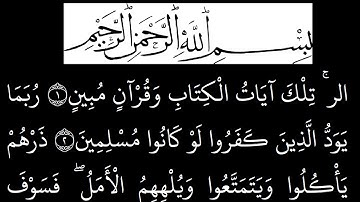 بِسْمِ اللَّهِ الرَّحْمَٰنِ الرَّحِيمِ
الر ۚ تِلْكَ آيَاتُ الْكِتَابِ وَقُرْآنٍ مُبِينٍ ﴿١﴾ رُبَمَا
يَوَدُّ الَّذِينَ كَفَرُوا لَوْ كَانُوا مُسْلِمِينَ ﴿٢﴾ ذَرْهُمْ
يَأْكُلُوا وَيَتَمَتَّعُوا وَيُلْهِهِمُ الْأَمَلُ ۖ فَسَوْفَ